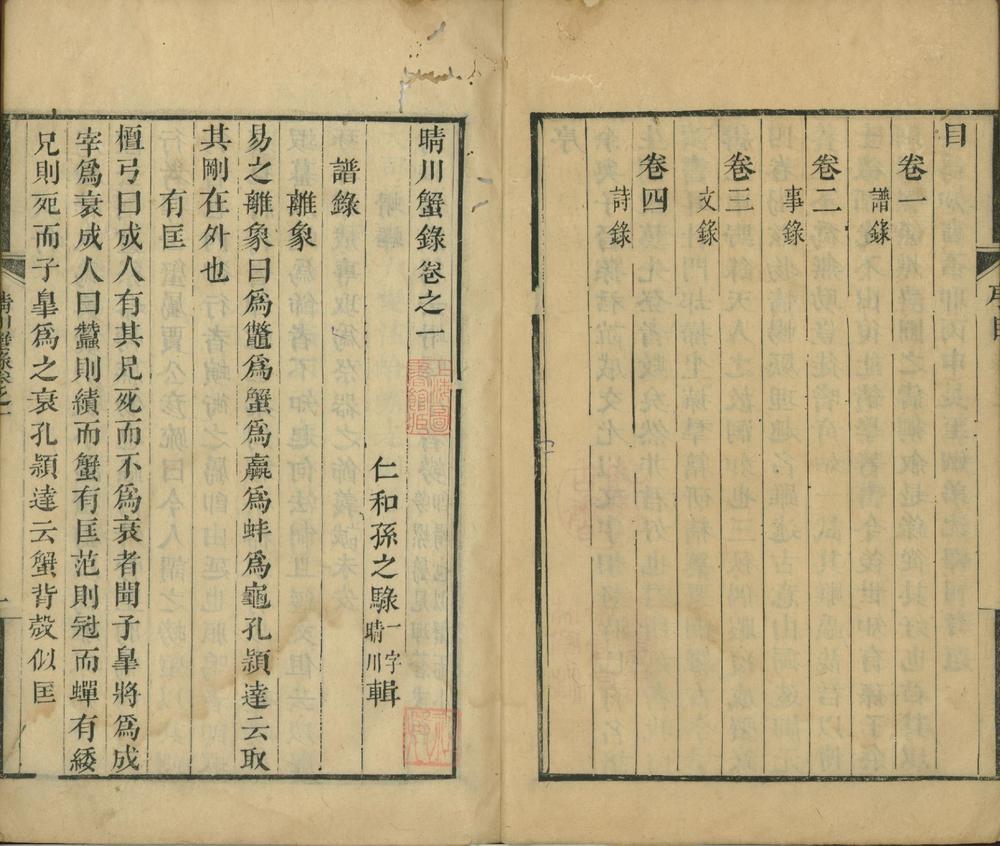 目
卷一
譜錄
卷二
事錄
卷三
文錄
卷四
詩錄
晴川蟹錄卷之一
仁和孫之騄一字晴川輯
譜錄
離象
易之離象曰爲鼈爲蟹爲蠃爲蚌爲龜孔穎達云取
其剛在外也
有匡
檀弓曰成人有其兄死而不爲衰者聞子臯將爲成
宰爲衰成人曰蠶則績而蟹有匡范則冠而蟬有緌
兄則死而子臯爲之衰孔穎達云蟹背殼似匡
晴川蟹錄卷之一
一